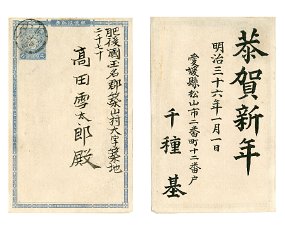 肥後國玉名郡築山村大字築地
二十七十
高田雪太郎殿
恭賀新年
明治三十六年一月一日
愛媛縣松山市二番町十二番戸
千種基